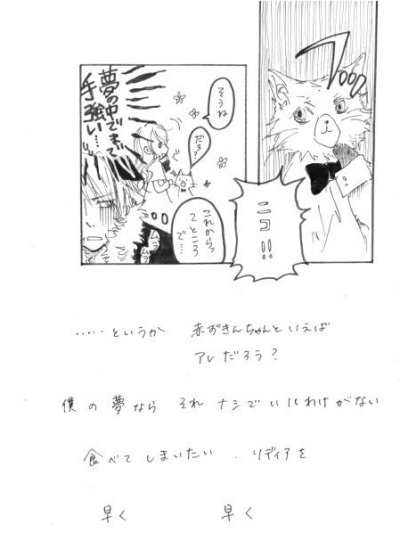 ニコ!!
そうね
だろ?
これからっ
てところ
で…
夢の中でまで
手強い……
……というか 赤ずきんちゃんといえば
アレだろう?
僕の夢なら それ ナシでいいわけがない
食べてしまいたい．リディアを
早く 早く